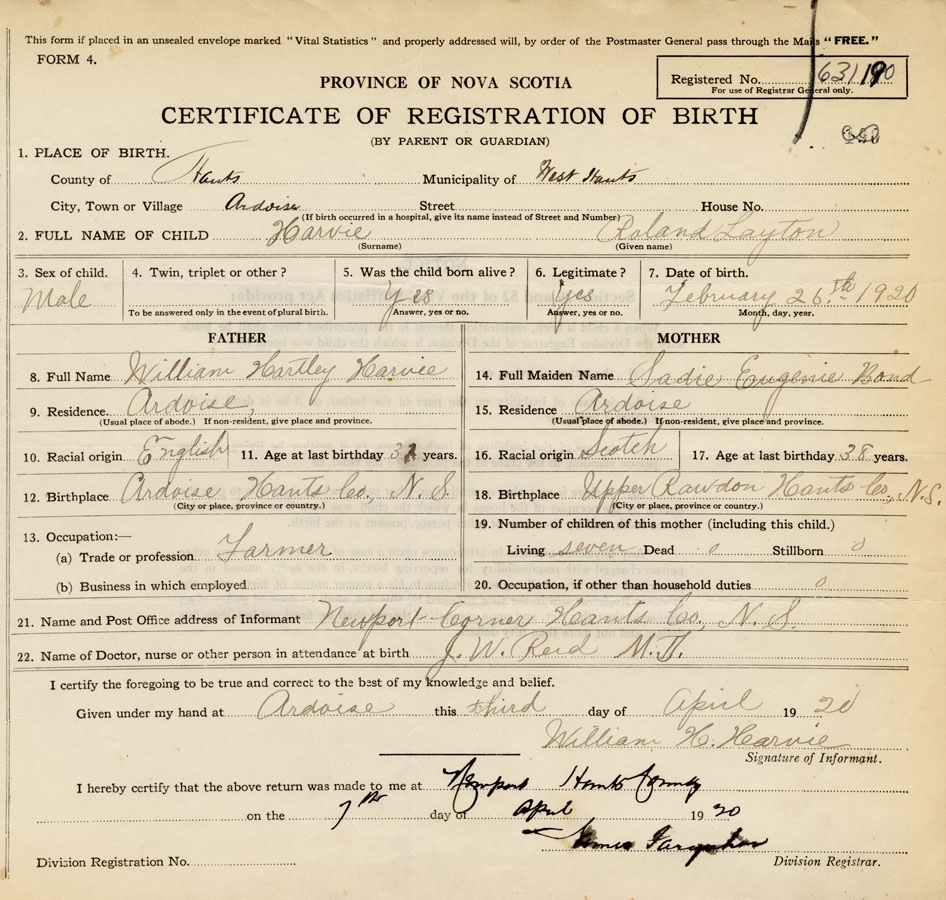 This form if placed in an unsealed envelope marked "Vital Statistics" and properly addressed will, by order of the Postmaster General pass through the Mails "FREE."
FORM 4.
PROVINCE OF NOVA SCOTIA
Registered No. 63119
For use of Registrar General only.
CERTIFICATE OF REGISTRATION OF BIRTH
(BY PARENT OR GUARDIAN)
1. PLACE OF BIRTH.
County of Hants Municipality of West Hants
City, Town or Village Ardoise Street House No.
(If birth occurred in a hospital, give its name instead of Street and Number)
2. FULL NAME OF CHILD Harvie Roland Layton
(Surname) (Given name)
3. Sex of child. 4. Twin, triplet or other? 5. Was the child born alive? 6. Legitimate? 7. Date of birth.
Male Yes Yes February 26th 1920
To be answered only in the event of plural birth. Answer, yes or no. Answer, yes or no. Month, day, year.
FATHER MOTHER
8. Full Name William Hartley Harvie 14. Full Maiden Name Sadie Eugenie Bond
9. Residence. Ardoise, 15. Residence Ardoise
(Usual place of abode.) If non-resident, give place and province. (Usual place of abode.) If non-resident, give place and province.
10. Racial origin English 11. Age at last birthday years. 16. Racial origin Scotch 17. Age at last birthday 38 years.
12. Birthplace Ardoise Hants Co., N. S. 18. Birthplace Upper Rawdon Hants Co., N.S.
(City or place, province or country.) (City or place, province or country.)
13. Occupation:— 19. Number of children of this mother (including this child.)
(a) Trade or profession Farmer Living seven Dead 0 Stillborn 0
(b) Business in which employed 20. Occupation, if other than household duties 0
21. Name and Post Office address of Informant Newport Corner Hants Co., N. S.
22. Name of Doctor, nurse or other person in attendance at birth J. W. Reid M.D.
I certify the foregoing to be true and correct to the best of my knowledge and belief.
Given under my hand at Ardoise this third day of April 19 20
William H. Harvie
Signature of Informant.
I hereby certify that the above return was made to me at Newport Hants County
on the 7th day of April 19 20
James Farquhar
Division Registration No. Division Registrar.